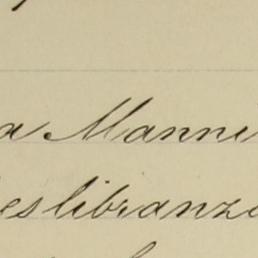 a Manne
eslibranza